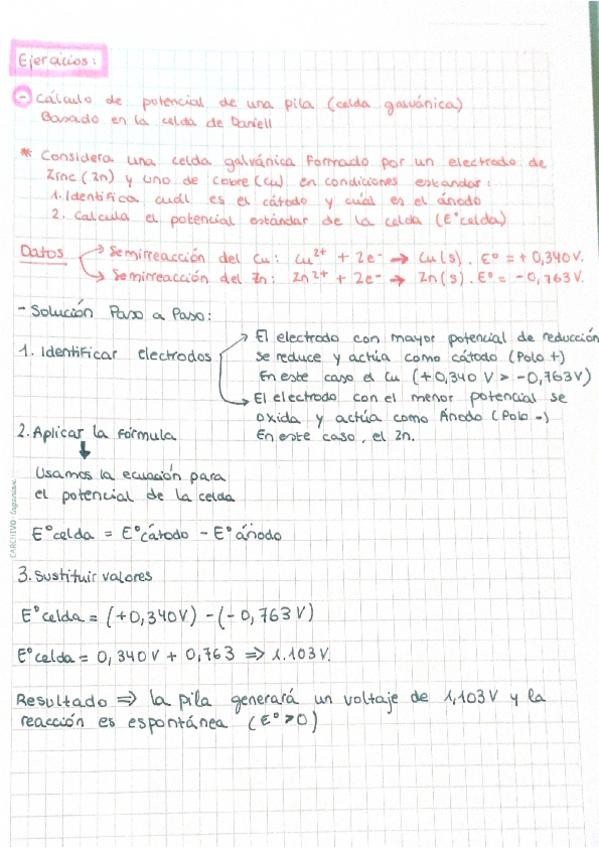 Ejercicios:
- Cálculo de potencial de una pila (celda galvánica)
Basado en la celda de Daniell
* Considera una celda galvánica formado por un electrodo de
Zinc (Zn) y uno de cobre (Cu) en condiciones estandar:
1. Identifica cuál es el cátodo y cuál es el ánodo
2. Calcula el potencial estándar de la celda (E°celda)
Datos → Semirreacción del Cu: Cu²⁺ + 2e⁻ → Cu(s). E° = + 0,340V.
→ Semirreacción del Zn: Zn²⁺ + 2e⁻ → Zn(s). E° = - 0,763V.
- Solución Paso a Paso:
1. Identificar electrodos
→ El electrodo con mayor potencial de reducción
se reduce y actúa como cátodo (Polo +)
En este caso el Cu (+0,340 V > -0,763V)
→ El electrodo con el menor potencial se
oxida y actúa como Ánodo (Polo -)
En este caso, el Zn.
2. Aplicar la fórmula
↓
Usamos la ecuación para
el potencial de la celda
E°celda = E°cátodo - E°ánodo
3. Sustituir valores
E°celda = (+0,340V) - (-0,763V)
E°celda = 0,340V + 0,763 ⇒ 1.103V.
Resultado ⇒ la pila generará un voltaje de 1,103V y la
reacción es espontánea (E°>0)